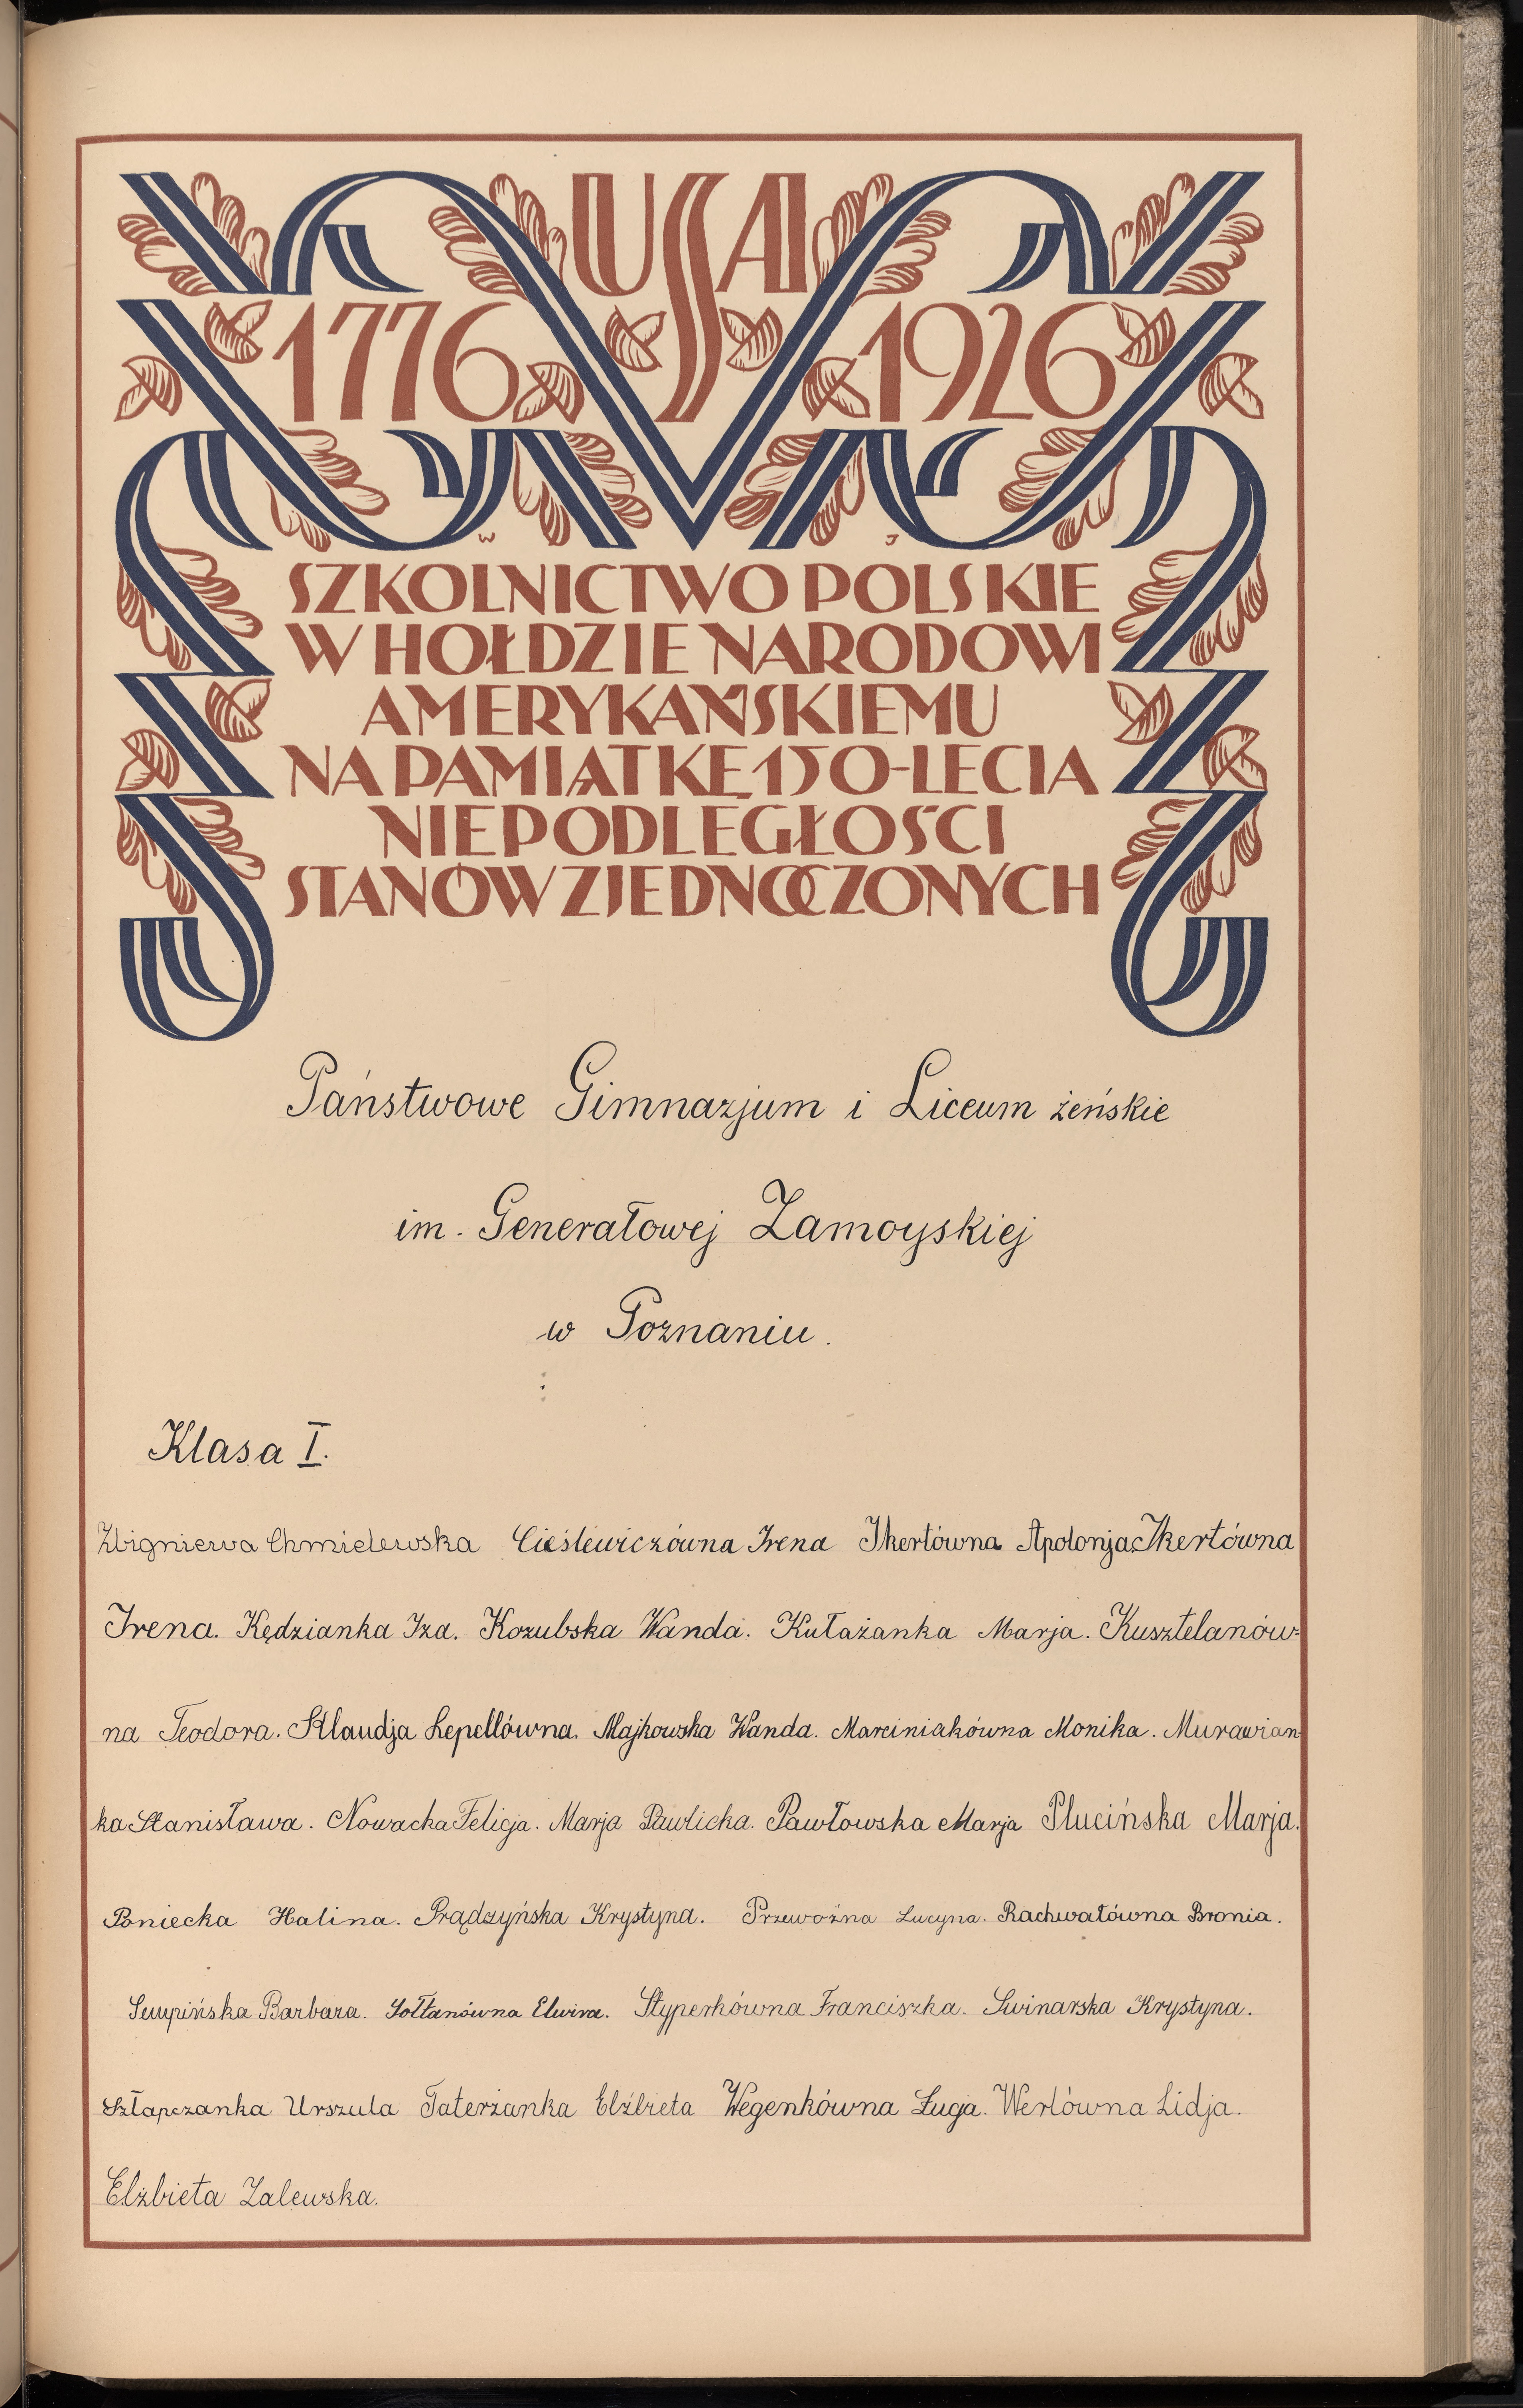 USA
1776 1926
W J
SZKOLNICTWO POLSKIE
W HOŁDZIE NARODOWI
AMERYKAŃSKIEMU
NA PAMIĄTKĘ 150-LECIA
NIEPODLEGŁOŚCI
STANÓW ZJEDNOCZONYCH
Państwowe Gimnazjum i Liceum żeńskie
im. Generałowej Zamoyskiej
w Poznaniu.
Klasa I.
Zbigniewa Chmielewska Cieślewiczówna Irena Ikertówna Apolonja Ikertówna
Irena. Kędzianka Iza. Kozubska Wanda. Kułażanka Marja. Kusztelanów-
na Teodora. Klaudja Lepellówna. Majkowska Wanda. Marciniakówna Monika. Murawian-
ka Stanisława. Nowacka Felicja. Marja Pawlicka. Pawłowska Marja Plucińska Marja.
Poniecka Halina. Prądzyńska Krystyna. Przewoźna Lucyna. Rachwałówna Bronia.
Sempińska Barbara. Sołtanówna Elwira. Styperkówna Franciszka. Swinarska Krystyna.
Szłapczanka Urszula Taterzanka Elżbieta Wegenkówna Ługa. Werlówna Lidja.
Elżbieta Zalewska.